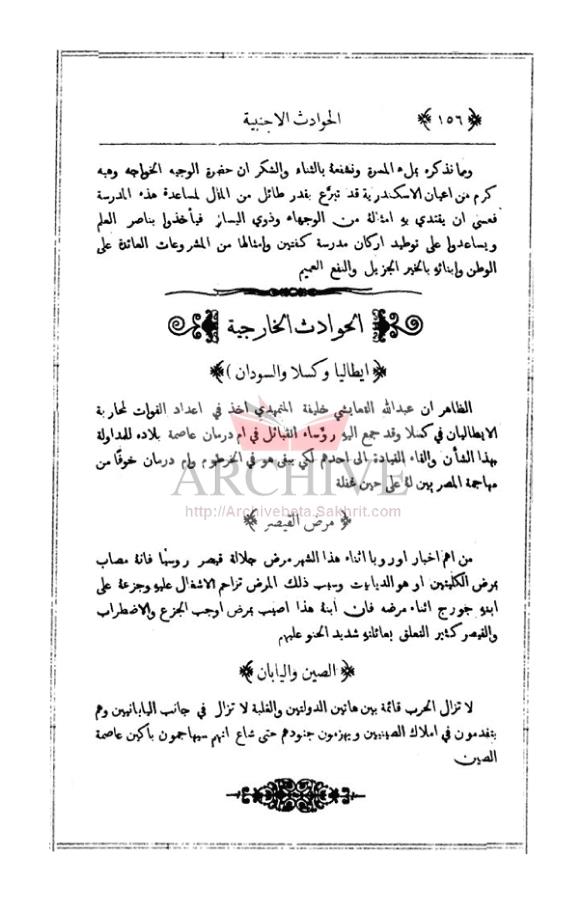 ﴿ ١٥٦ ﴾ الحوادث الاجنبية
ومما نذكره بملء المسرة ونشفعة بالثناء والشكر ان حضرة الوجيه الخواجه وهبه
كرم من اعيان الاسكندرية قد تبرَّع بقدر طائل من المال لمساعدة هذه المدرسة
فعسى ان يقتدي بهِ امثالهُ من الوجهاء وذوي اليسار فيأخذوا بناصر العلم
ويساعدوا على توطيد اركان مدرسة كفتين وامثالها من المشروعات العائدة على
الوطن وابنائهِ بالخير الجزيل والنفع العميم
الحوادث الخارجية
﴿ ايطاليا وكسلا والسودان ﴾
الظاهر ان عبدالله التعايشي خليفة المتمهدي اخذ في اعداد القوات لمحاربة
الايطاليان في كسلا وقد جمع اليهِ رؤساء القبائل في ام درمان عاصمة بلاده للمداولة
بهذا الشأن والقاء القيادة الى احدهم لكي يبقى هو في الخرطوم وام درمان خوفًا من
مهاجمة المصريين لهُ على حين غفلة
ARCHIVE
http://Archivebeta.Sakhrit.com
﴿ مرض القيصر ﴾
من اهم اخبار اوروبا اثناء هذا الشهر مرض جلالة قيصر روسيا فانهُ مصاب
بمرض الكليتين او هو الديابيت وسبب ذلك المرض تزاحم الاشغال عليهِ وجزعهُ على
ابنهِ جورج اثناء مرضه فان ابنهُ هذا اصيب بمرض اوجب الجزع والاضطراب
والقيصر كثير التعلق بعائلتهِ شديد الحنو عليهم
﴿ الصين واليابان ﴾
لا تزال الحرب قائمة بين هاتين الدولتين والغلبة لا تزال في جانب اليابانيين وهم
يتقدمون في املاك الصينيين ويهزمون جنودهم حتى شاع انهم سيهاجمون باكين عاصمة
الصين